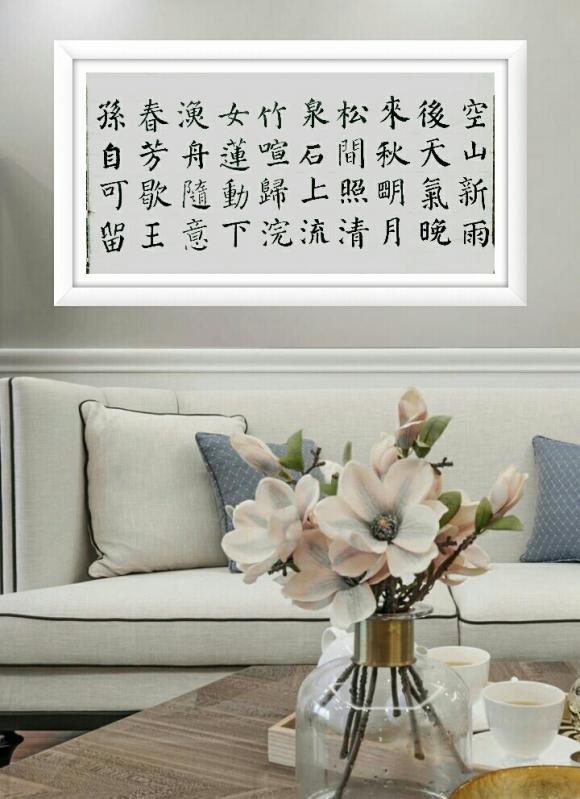 空山新雨
後天氣晚
來秋明月
松間照清
泉石上流
竹喧歸浣
女蓮動下
漁舟隨意
春芳歇王
孫自可留